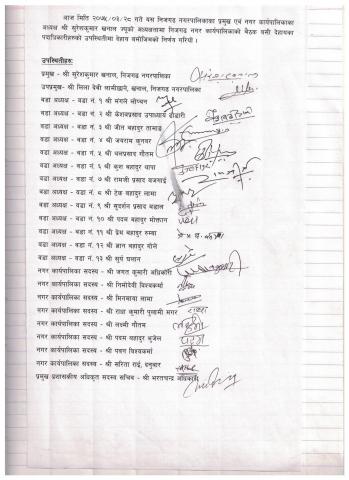 आज मिति २०७५/०३/२८ गते यस निजगढ नगरपालिकाका प्रमुख एवं नगर कार्यपालिकाका
अध्यक्ष श्री सुरेशकुमार खनाल ज्यूको अध्यक्षतामा निजगढ नगर कार्यपालिकाको बैठक बसी देहायका
पदाधिकारीहरुको उपस्थितीमा देहाय बमोजिमको निर्णय गरियो ।
उपस्थितीहरु:
प्रमुख - श्री सुरेशकुमार खनाल, निजगढ नगरपालिका
उपप्रमुख - श्री लिला देवी लामीछाने, खनाल, निजगढ नगरपालिका
वडा अध्यक्ष - वडा नं. १ श्री मंगले लोप्चन
वडा अध्यक्ष - वडा नं. २ श्री केशवप्रसाद उपाध्याय ढोडारी
वडा अध्यक्ष - वडा नं. ३ श्री जीत बहादुर तामाङ
वडा अध्यक्ष - वडा नं. ४ श्री जयराम कुनवर
वडा अध्यक्ष - वडा नं. ५ श्री थलप्रसाद गौतम
वडा अध्यक्ष - वडा नं. ६ श्री कुश बहादुर थापा
वडा अध्यक्ष - वडा नं. ७ श्री रामजी प्रसाद बजगाई
वडा अध्यक्ष - वडा नं. ८ श्री टेक बहादुर लामा
वडा अध्यक्ष - वडा नं. ९ श्री सुदर्शन प्रसाद बडाल
वडा अध्यक्ष - वडा नं. १० श्री पदम बहादुर मोक्तान
वडा अध्यक्ष - वडा नं. ११ श्री प्रेम बहादुर रुम्बा
वडा अध्यक्ष - वडा नं. १२ श्री ज्ञान बहादुर गोले
वडा अध्यक्ष - वडा नं. १३ श्री सूर्य घलान
नगर कार्यपालिका सदस्य - श्री जगत कुमारी अधिकारी
नगर कार्यपालिका सदस्य - श्री निमोदेवी विश्वकर्मा
नगर कार्यपालिका सदस्य - श्री मिनमाया लामा
नगर कार्यपालिका सदस्य - श्री राधा कुमारी पुलामी मगर
नगर कार्यपालिका सदस्य - श्री लक्ष्मी गौतम लक्ष्मी
नगर कार्यपालिका सदस्य - श्री पदम बहादुर भुजेल पदम
नगर कार्यपालिका सदस्य - श्री पवन विश्वकर्मा
नगर कार्यपालिका सदस्य - श्री सरिता राई, दनुवार
प्रमुख प्रशासकीय अधिकृत सदस्य सचिव - श्री भरतचन्द्र अधिकारी